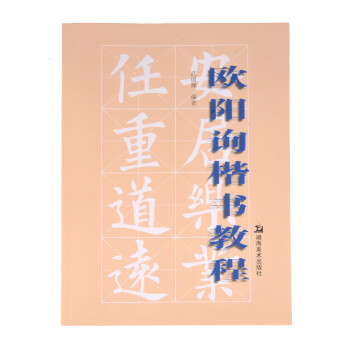 欧阳询楷书教程
编著
湖南美术出版社
安居樂業
任重道遠